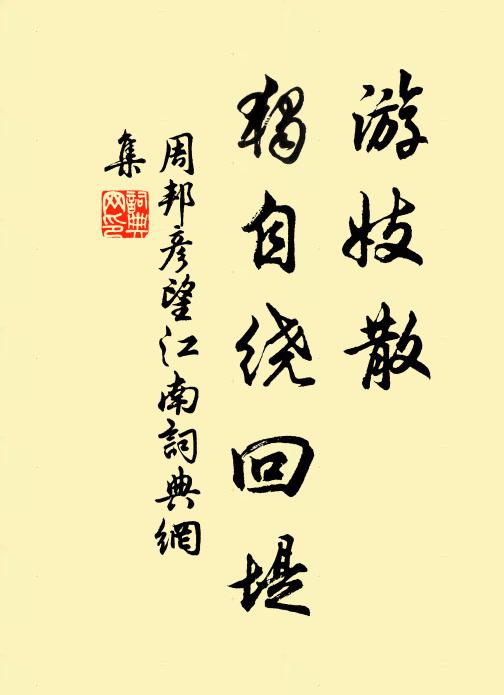 游妓散
獨自绕回堤
周邦彦望江南詞典網
集
詞典网印